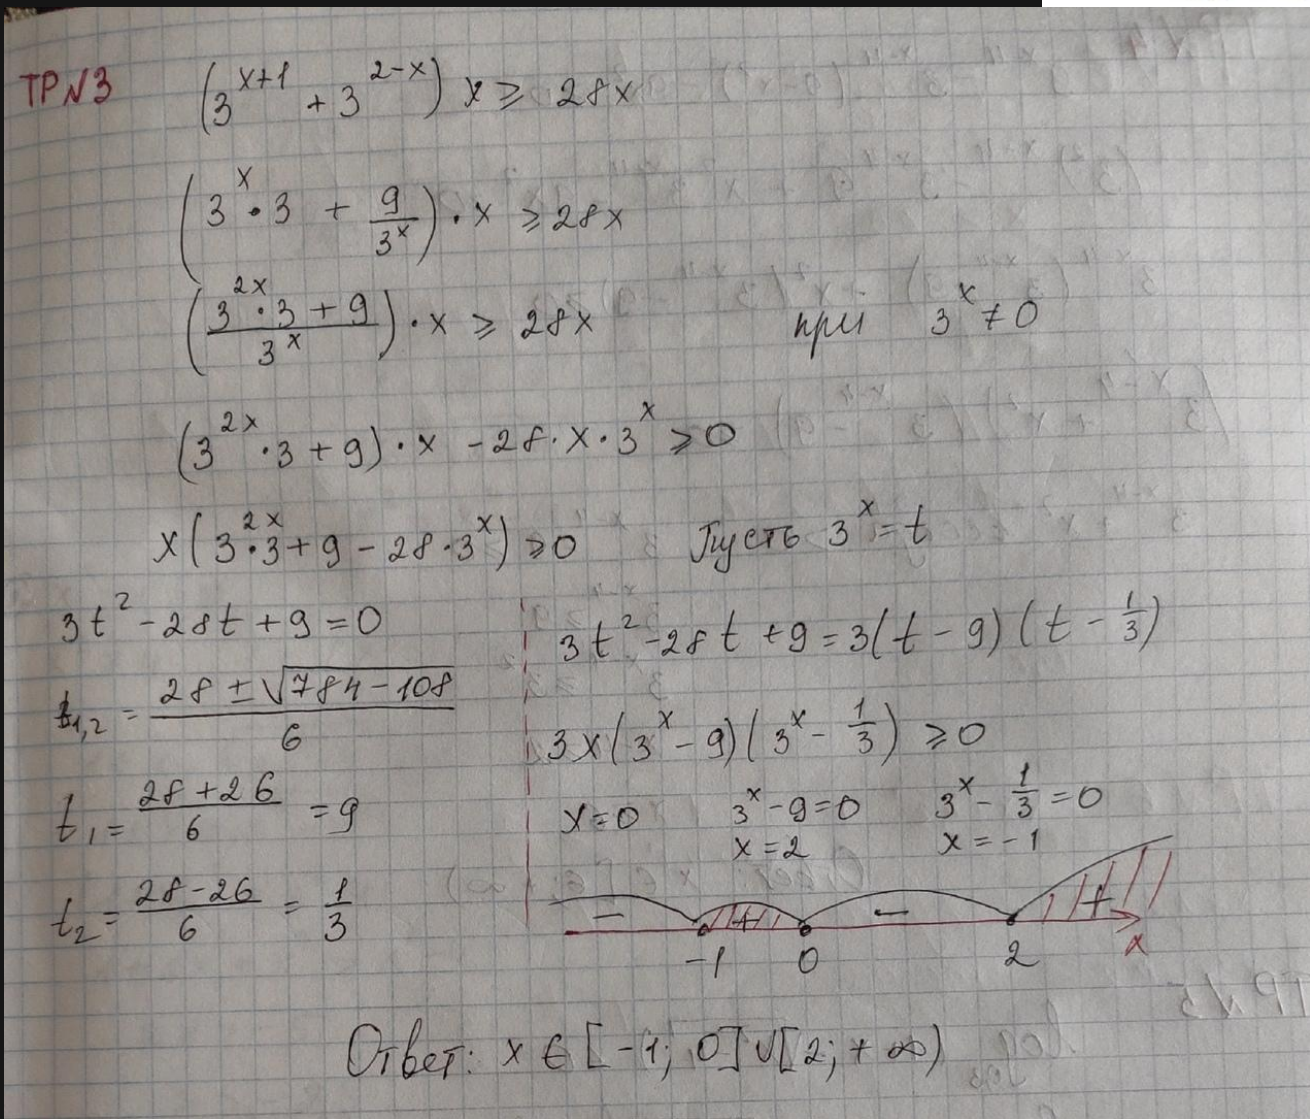 ТР№3 (3^{x+1} + 3^{2-x}) x ≥ 28x
(3^x · 3 + 9/3^x) · x ≥ 28x
((3^{2x} · 3 + 9)/3^x) · x ≥ 28x при 3^x ≠ 0
(3^{2x} · 3 + 9) · x - 28 · x · 3^x ≥ 0
x(3^{2x} · 3 + 9 - 28 · 3^x) ≥ 0 Пусть 3^x = t
3t² - 28t + 9 = 0
t_{1,2} = (28 ± √(784 - 108))/6
t_1 = (28 + 26)/6 = 9
t_2 = (28 - 26)/6 = 1/3
3t² - 28t + 9 = 3(t - 9)(t - 1/3)
3x(3^x - 9)(3^x - 1/3) ≥ 0
x = 0 3^x - 9 = 0 3^x - 1/3 = 0
x = 2 x = -1
- + - +
-1 0 2 x
Ответ: x ∈ [-1; 0] ∪ [2; + ∞)